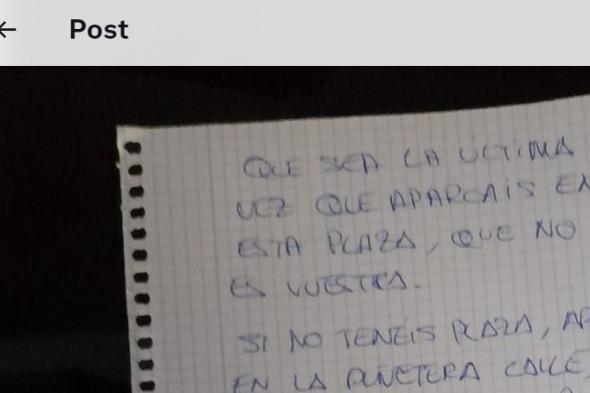 Post
QUE SEA LA ULTIMA
VEZ QUE APARCAIS EN
ESTA PLAZA, QUE NO
ES VUESTRA.
SI NO TENEIS PLAZA, AP
EN LA PUÑETERA CALLE,